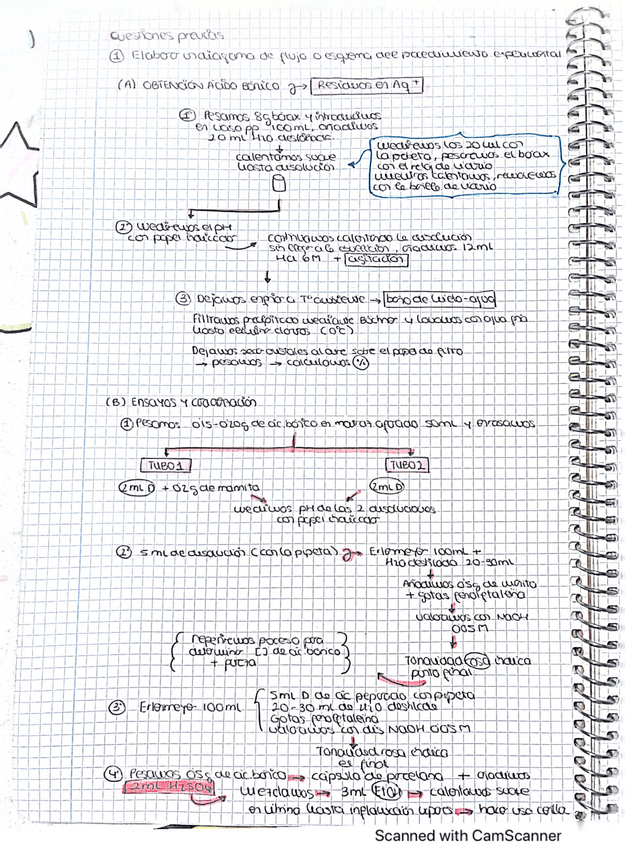 Cuestiones previas
① Elabora un diagrama de flujo o esquema del procedimiento experimental
(A) OBTENCIÓN ÁCIDO BÓRICO → Residuos en Ag+
① Pesamos 8g bórax y introducimos
en vaso pp 100mL, añadimos
20 mL H2O destilada.
calentamos suave
hasta disolución
mediremos los 20 ml con
la pipeta, pesaremos el bórax
con el reloj de vidrio
mientras calentamos, removemos
con la barilla de vidrio
② mediremos el pH
con papel indicador
continuamos calentando la disolución
sin llegar a la ebullición, añadimos 12ml
HCl 6M + agitación
③ Dejamos enfriar a Tª ambiente → baño de hielo-agua
Filtramos precipitado mediante Büchner y lavamos con agua fría
hasta eliminar cloruros (0ºC)
Dejamos secar cristales al aire sobre el papel de filtro
→ pesamos → calculamos %
(B) ENSAYOS Y COMPROBACIÓN
① Pesamos 0'15-0'20g de ác bórico en matraz aforado 50mL y enrasamos
TUBO 1
TUBO 2
2mL D + 0'2g de manita
2mL D
medimos pH de las 2 disoluciones
con papel indicador
② 5 ml de disolución (con la pipeta) → Erlenmeyer 100mL +
H2O destilada 20-30mL
Añadimos 0'5g de manito
+ gotas fenolftaleína
valoramos con NaOH
0'05 M
Tonalidad rosa indica
punto final
repetiremos proceso para
determinar [] de ác bórico
+ pureza
③ Erlenmeyer 100mL
5mL D de ác preparado con pipeta
20-30 ml de H2O destilada
Gotas fenolftaleína
valoramos con dis NaOH 0'05M
Tonalidad rosa indica
el final
④ Pesamos 0'5g de ác bórico → cápsula de porcelana + añadimos
2mL H2SO4
mezclamos → 3mL EtOH → calentamos suave
en vitrina hasta inflamación vapores → hace uso cerilla
Scanned with CamScanner